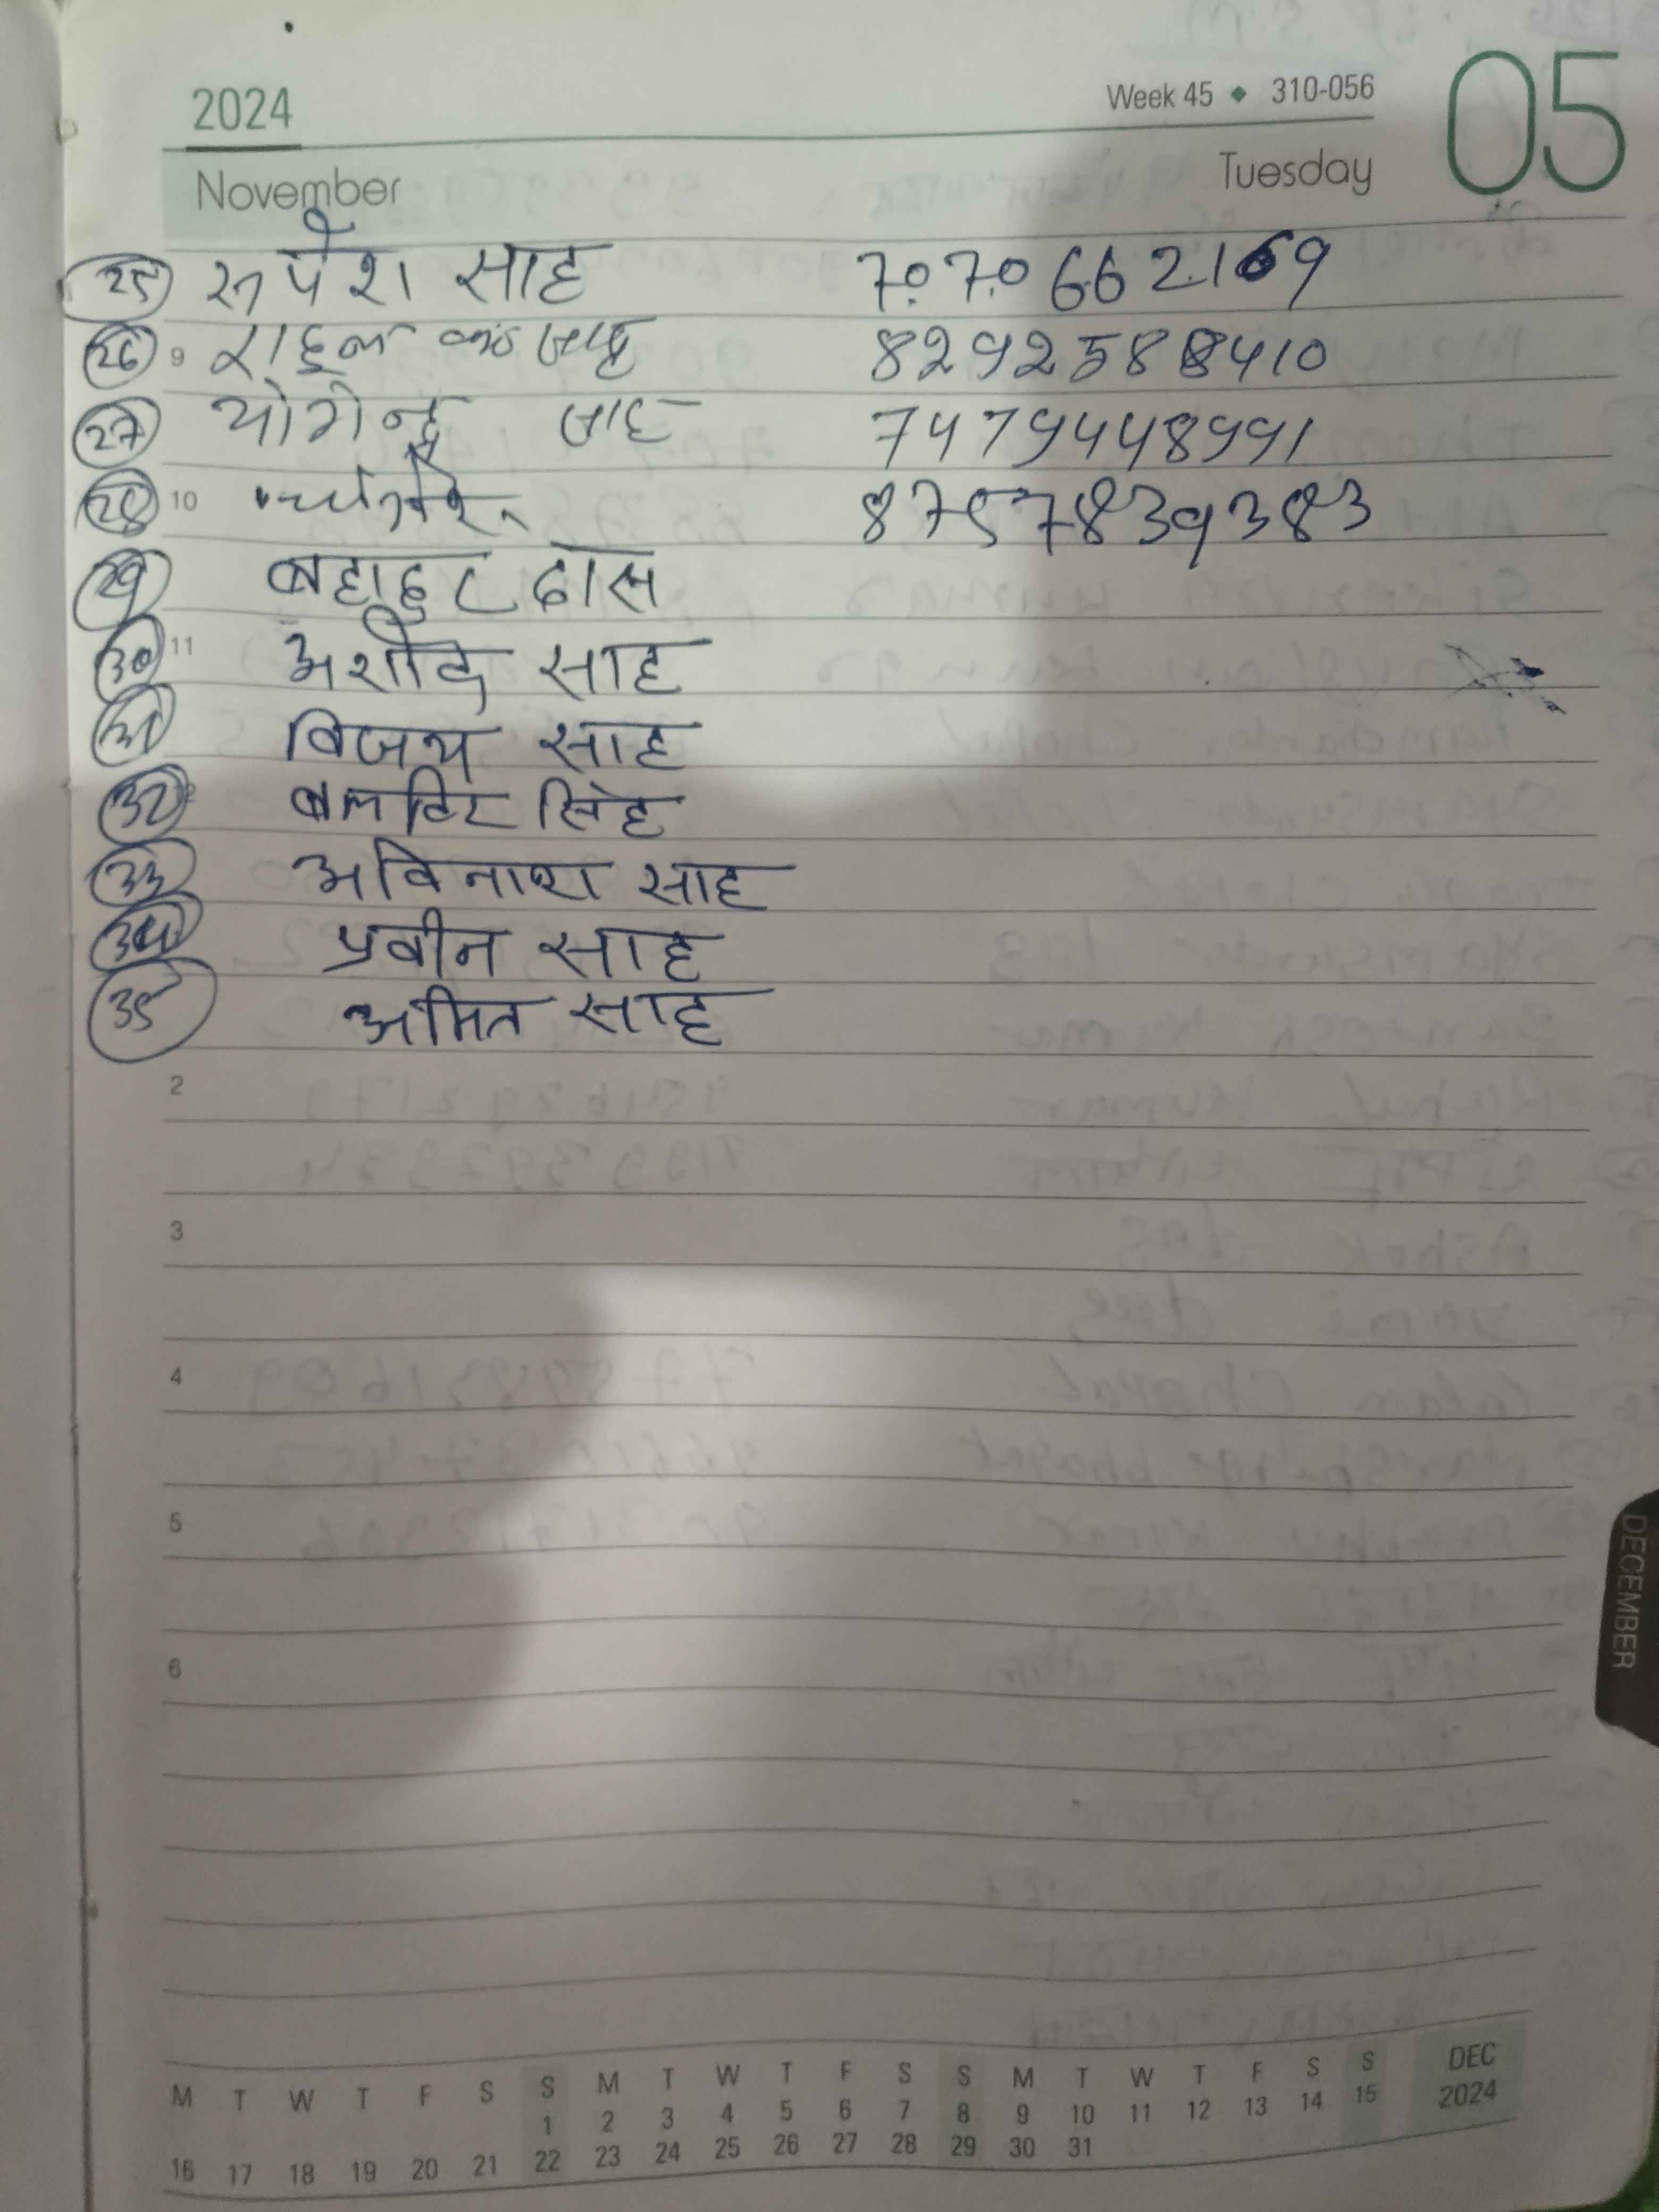 2024
Week 45 ◆ 310-056
05
November
Tuesday
25 रुपेश साह 7070662169
26 9 राहुल साह 8292588410
27 योगेन्द्र साह 7479448991
28 10 8757839383
29 बहादुर दास
30 11 साह
31 विजय साह
32 सिंह
33 अविनाश साह
34 प्रवीन साह
35 अमित साह
2
3
4
5
6
DECEMBER
M T W T F S S M T W T F S S M T W T F S S DEC
1 2 3 4 5 6 7 8 9 10 11 12 13 14 15 2024
16 17 18 19 20 21 22 23 24 25 26 27 28 29 30 31